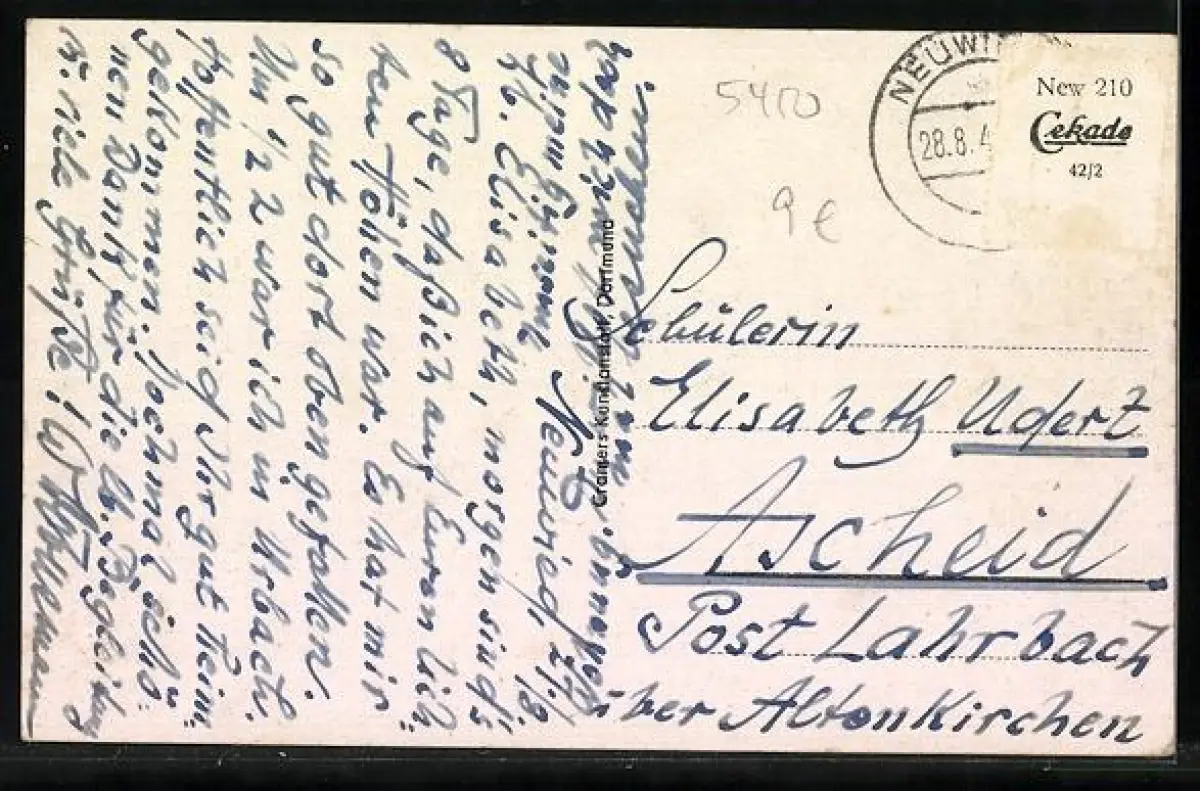 Neuwied, 27/8.
Lb. Elisabeth, morgen sind's
8 Tage, daß ich auf Euren lich-
ten Höhen war. Es hat mir
so gut dort oben gefallen.
Um 1/2 2 war ich in Urbach.
Hoffentlich seid Ihr gut heim-
gekommen. Nochmal schö-
nen Dank für die lb. Begleitung
u. viele Grüße!
Cramers Kunstanstalt, Dortmund
5400
9 €
NEUWI
28.8.4
New 210
Cekade
42/2
Schülerin
Elisabeth Udert
Ascheid
Post Lahrbach
über Altenkirchen